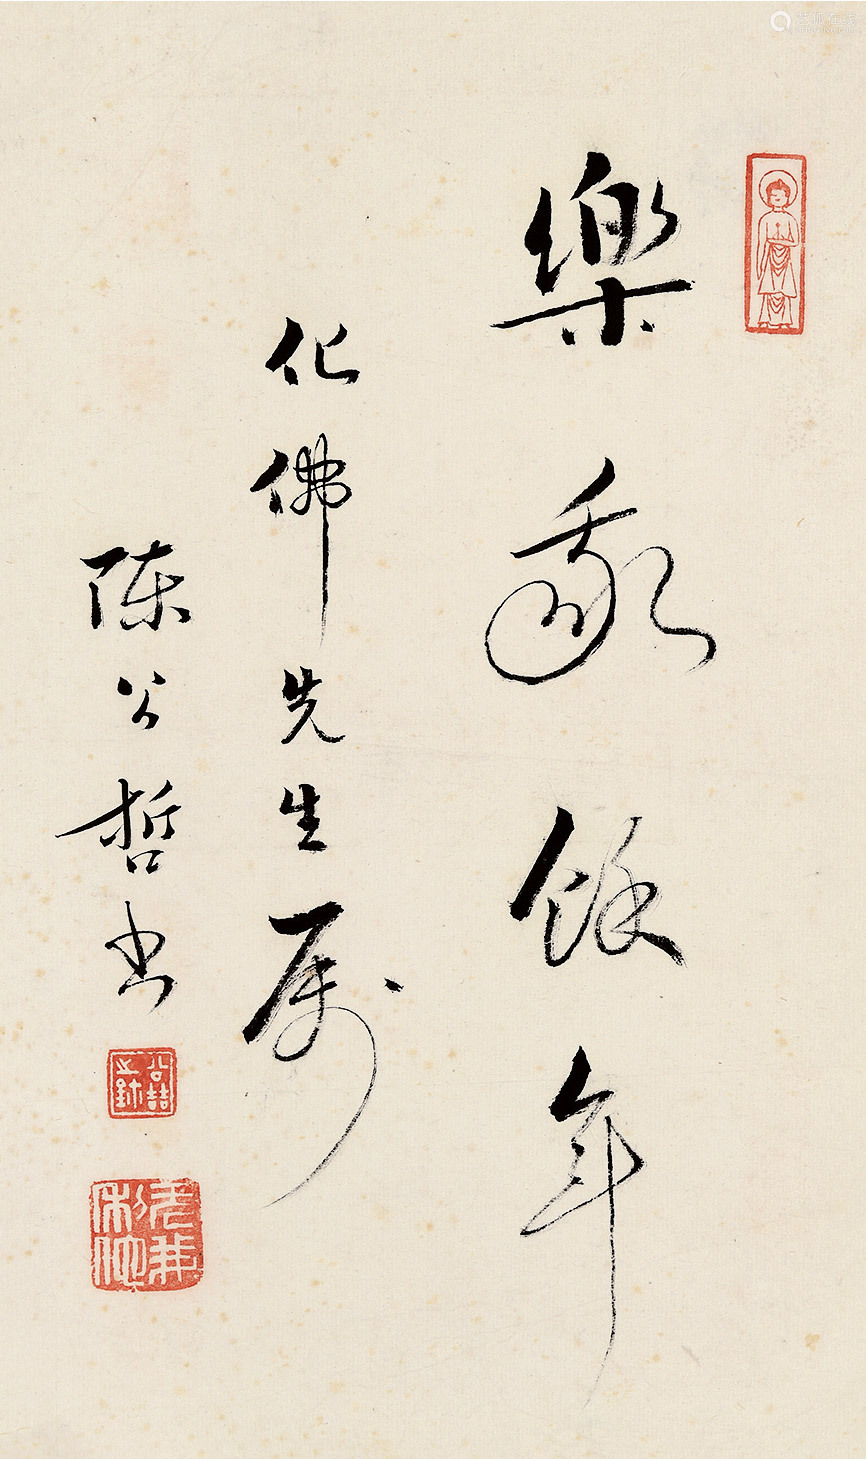 樂我餘年
化佛先生属
陈公哲书